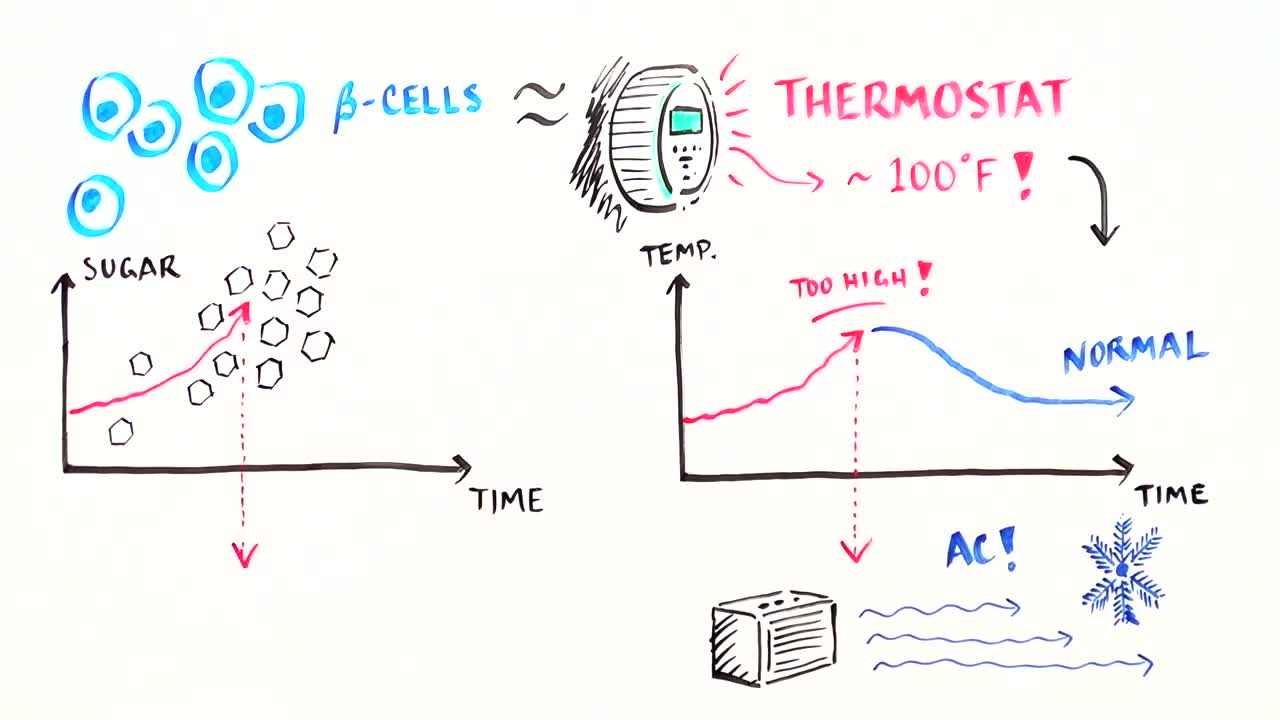 β-CELLS ≈ THERMOSTAT
~ 100°F!
SUGAR
TIME
TEMP.
TOO HIGH!
NORMAL
TIME
AC!